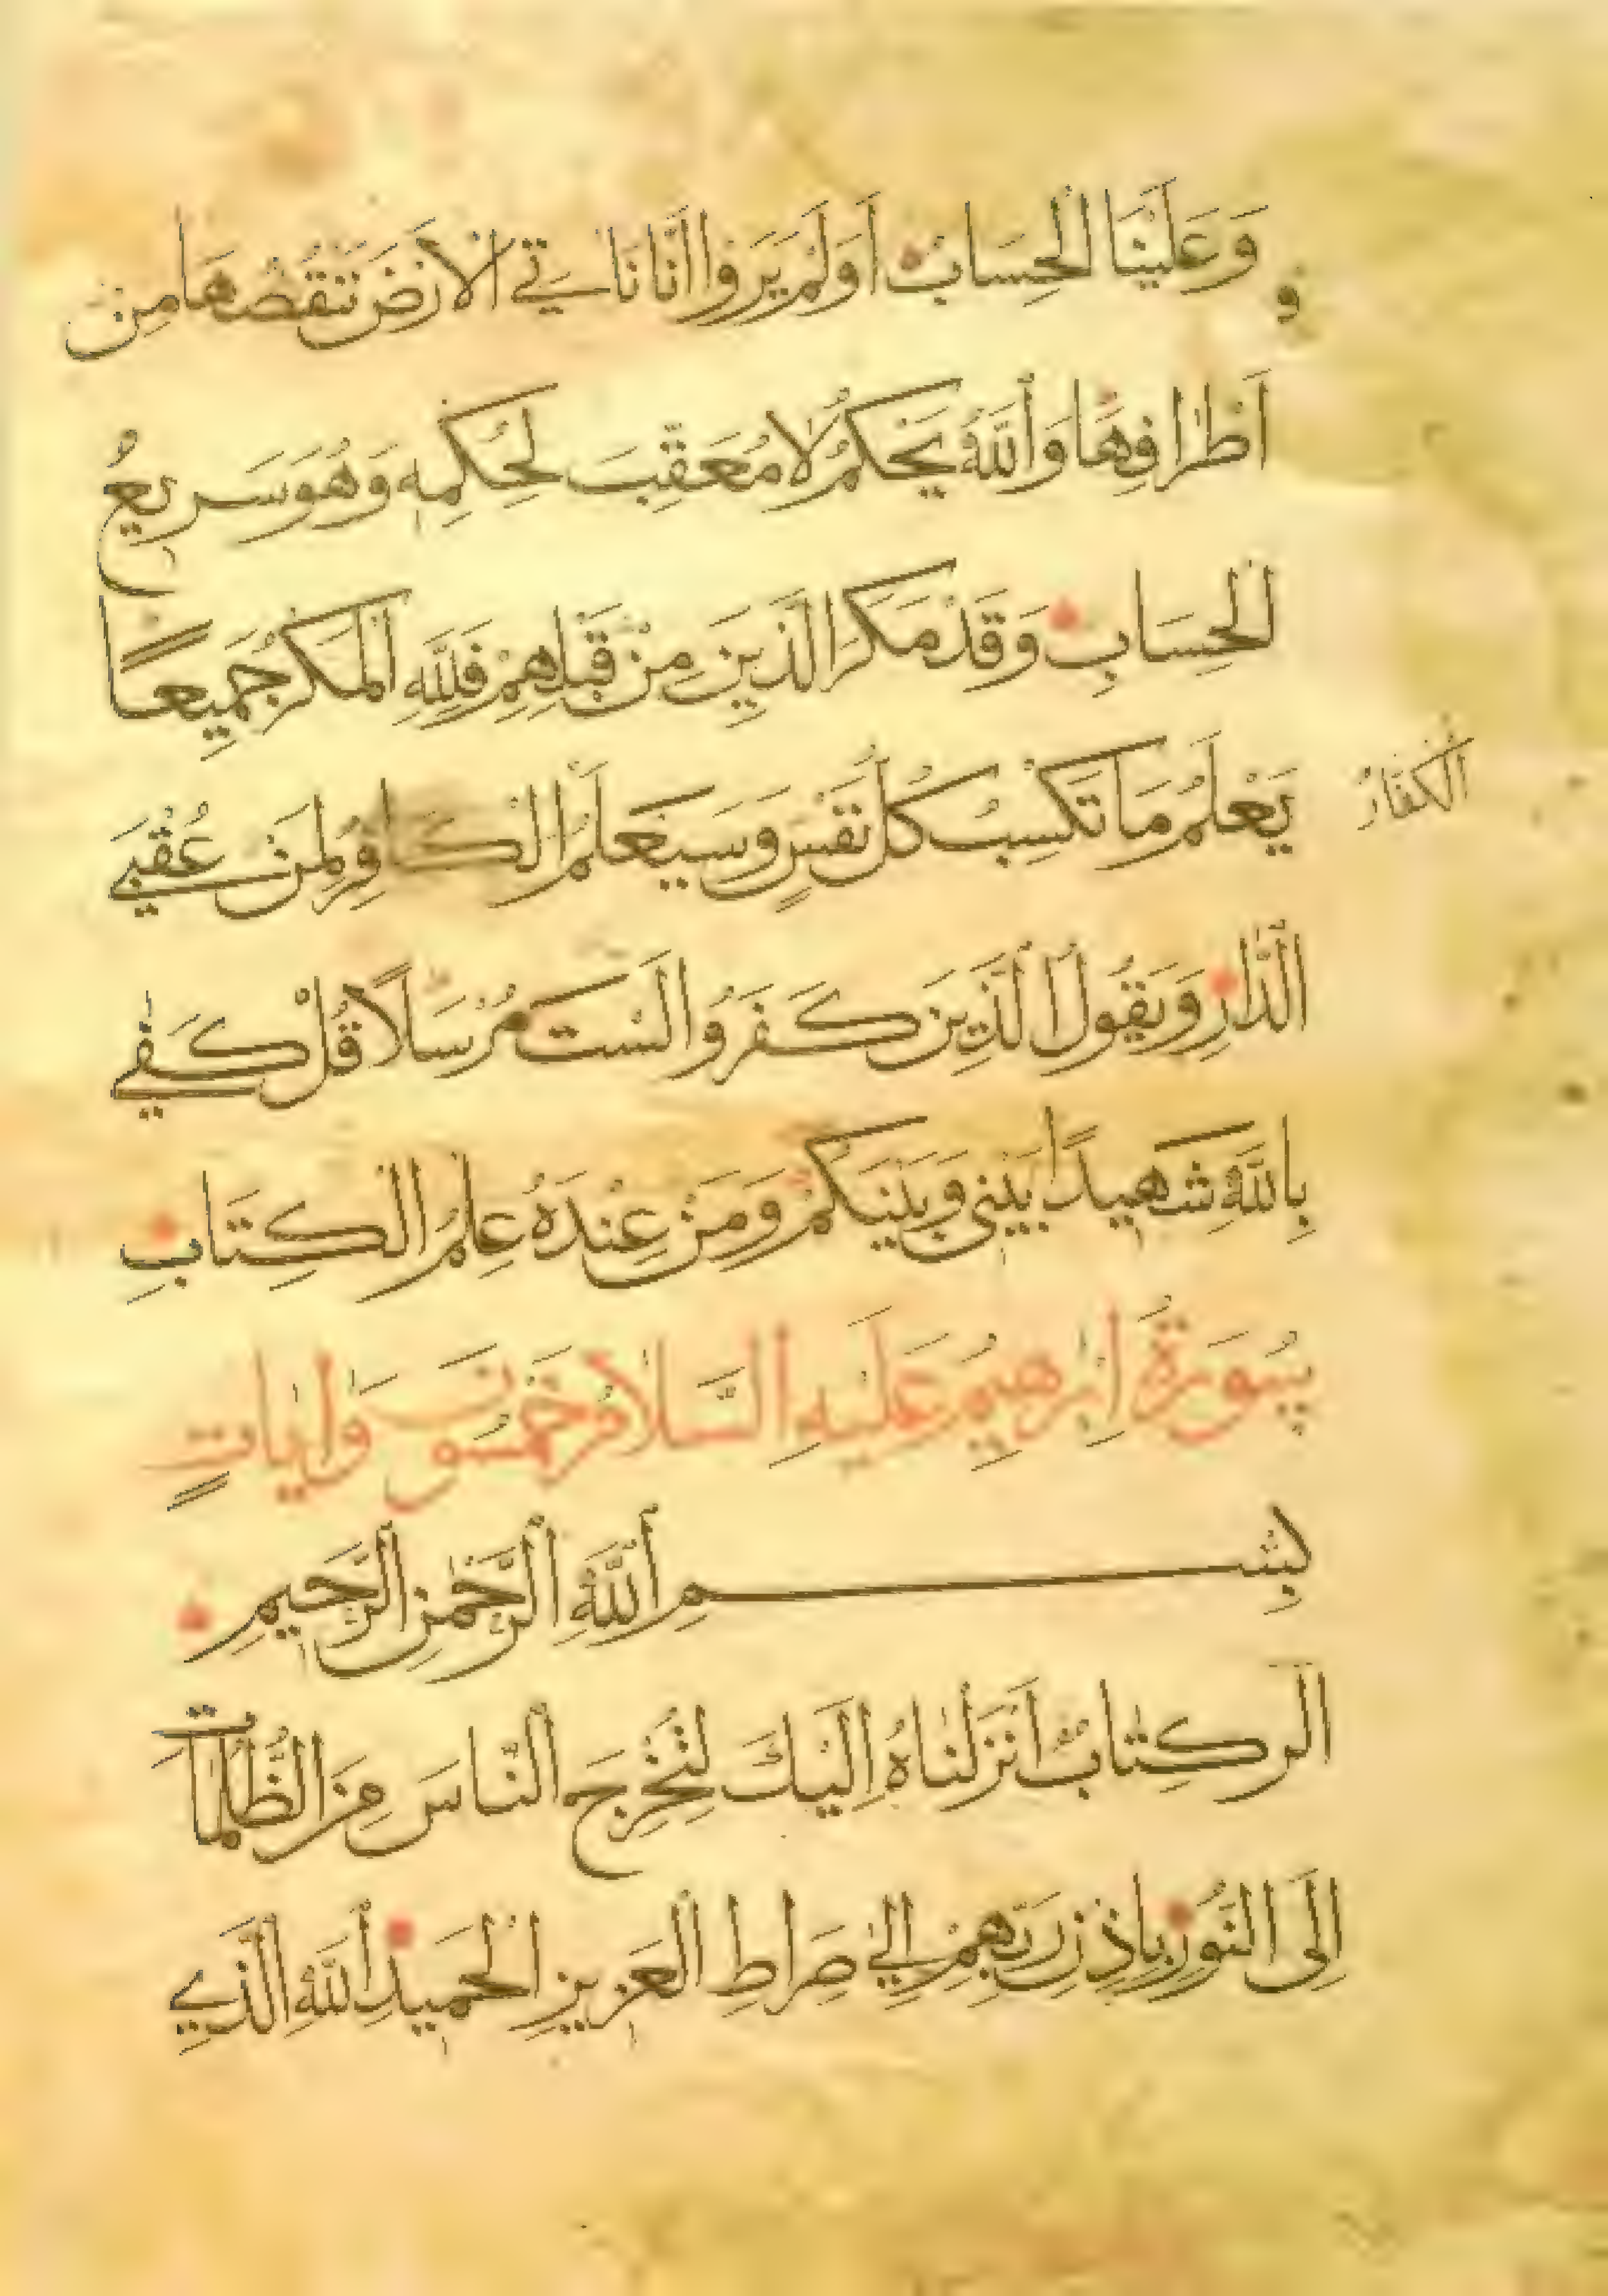 وَعَلَيْنَا الْحِسَابُ اَوَلَمْ يَرَوْا اَنَّا نَاْتِي الْاَرْضَ نَنْقُصُهَا مِنْ
اَطْرَافِهَا وَاللّٰهُ يَحْكُمُ لَا مُعَقِّبَ لِحُكْمِهِ وَهُوَ سَرِيعُ
الْحِسَابِ وَقَدْ مَكَرَ الَّذِينَ مِنْ قَبْلِهِمْ فَلِلّٰهِ الْمَكْرُ جَمِيعًا
يَعْلَمُ مَا تَكْسِبُ كُلُّ نَفْسٍ وَسَيَعْلَمُ الْكَافِرُ لِمَنْ عُقْبَي
الْكُفَّارُ
الدَّارِ وَيَقُولُ الَّذِينَ كَفَرُوا لَسْتَ مُرْسَلًا قُلْ كَفٰي
بِاللّٰهِ شَهِيدًا بَيْنِي وَبَيْنَكُمْ وَمَنْ عِنْدَهُ عِلْمُ الْكِتَابِ
سُورَةُ اِبْرٰهِيمَ عَلَيْهِ السَّلَامُ خَمْسُونَ وَاٰيَاتٍ
بِسْمِ اللّٰهِ الرَّحْمٰنِ الرَّحِيمِ
الر كِتَابٌ اَنْزَلْنَاهُ اِلَيْكَ لِتُخْرِجَ النَّاسَ مِنَ الظُّلُمَاتِ
اِلَى النُّورِ بِاِذْنِ رَبِّهِمْ اِلٰي صِرَاطِ الْعَزِيزِ الْحَمِيدِ اَللّٰهِ الَّذِي